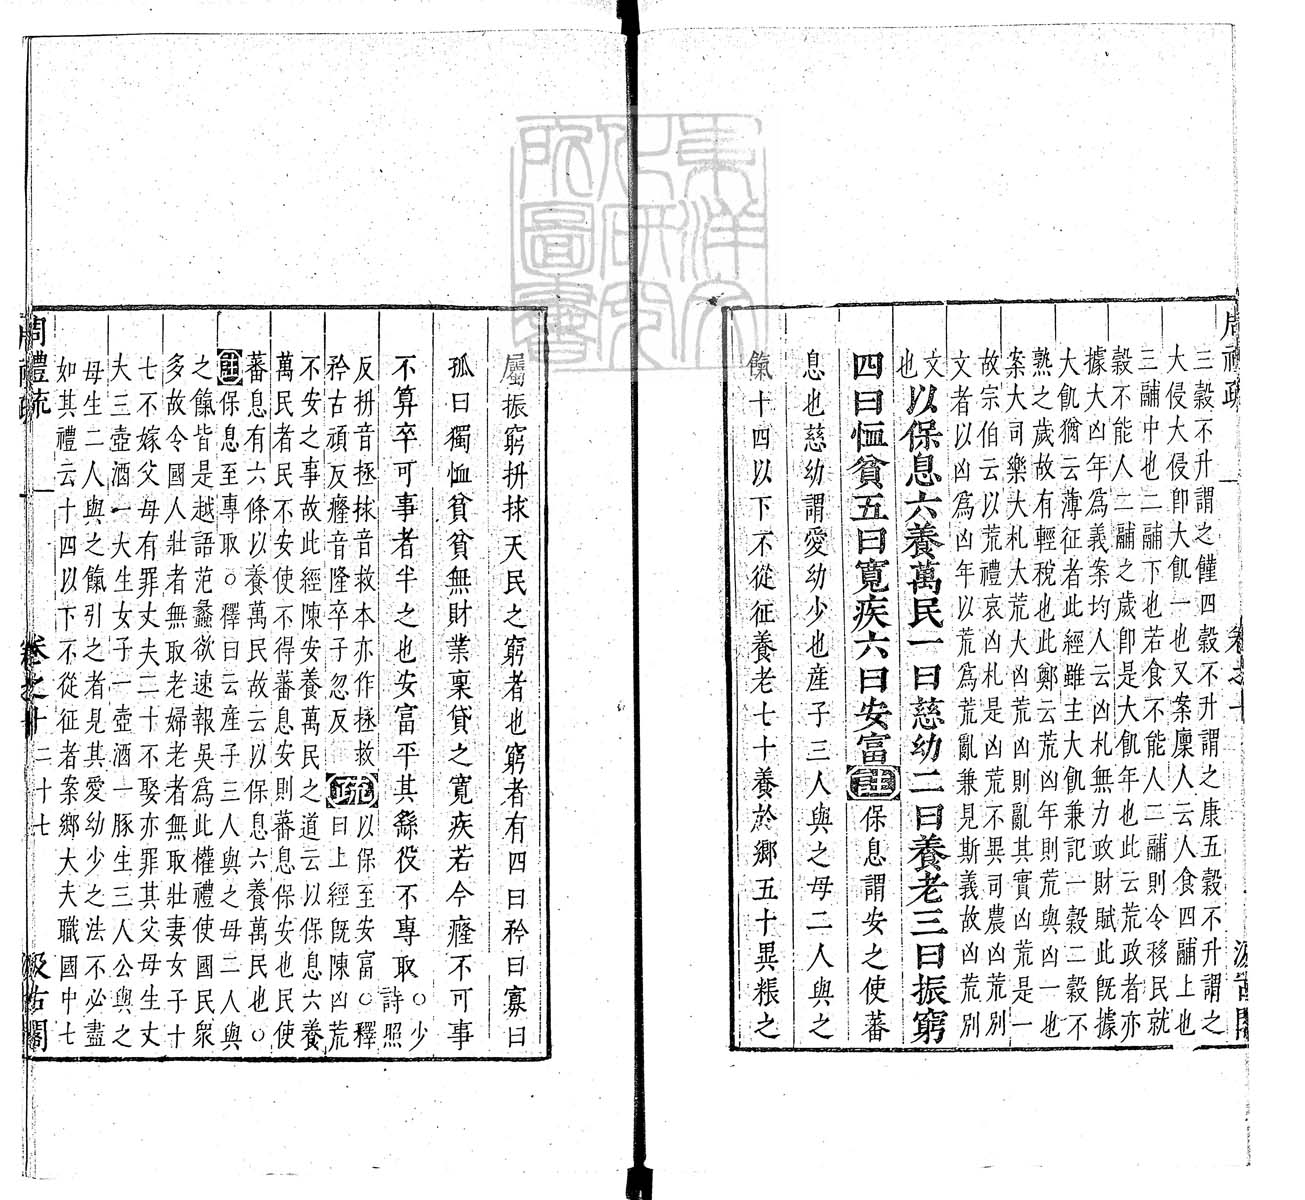 三穀不升謂之饉四穀不升謂之康五穀不升謂之
大侵大侵卽大飢一也又案廩人云人食四鬴上也
三鬴中也二鬴下也若食不能人二鬴則令移民就
穀不能人二鬴之歲卽是大飢年也此云荒政者亦
據大凶年爲義案均人云凶札無力政財賦此旣據
大飢猶云薄征者此經雖主大飢兼記一穀二穀不
熟之歲故有輕稅也此鄭云荒凶年則荒與凶一也
案大司樂大札大荒大凶荒凶則亂其實凶荒是一
故宗伯云以荒禮哀凶札是凶荒不異司農凶荒別
文者以凶爲凶年以荒爲荒亂兼見斯義故凶荒別
文
也
以保息六養萬民一曰慈幼二曰養老三曰振窮
四曰恤貧五曰寬疾六曰安富註保息謂安之使蕃
息也慈幼謂愛幼少也産子三人與之母二人與之
餼十四以下不從征養老七十養於鄉五十異粻之
屬振窮拼抹天民之窮者也窮者有四曰矜曰寡曰
孤曰獨恤貧貧無財業稟貸之寬疾若今癃不可事
不算卒可事者半之也安富平其繇役不專取○少
詩照
反拼音拯抹音救本亦作拯救
矜古頑反癃音隆卒子忽反
疏以保至安富○釋
曰上經旣陳凶荒
不安之事故此經陳安養萬民之道云以保息六養
萬民者民不安使不得蕃息安則蕃息保安也民使
蕃息有六條以養萬民故云以保息六養萬民也○
註保息至專取○釋曰云産子三人與之母二人與
之餼皆是越語范蠡欲速報吳爲此權禮使國民衆
多故令國人壯者無取老婦老者無取壯妻女子十
七不嫁父母有罪丈夫二十不娶亦罪其父母生丈
大三壺酒一犬生女子一壺酒一豚生三人公與之
母生二人與之餼引之者見其愛幼少之法不必盡
如其禮云十四以下不從征者案鄉大夫職國中七
周禮疏
卷之十
二十七
汲古閣